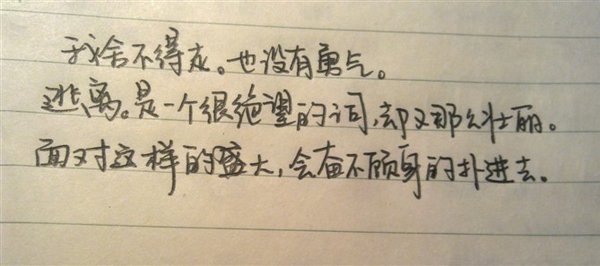 我舍不得走。也没有勇气。
逃离。是一个很绝望的词,却又那么壮丽。
面对这样的盛大,会奋不顾身的扑进去。